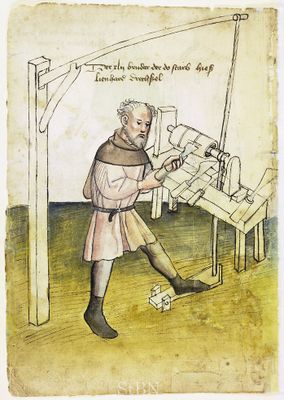 Der xlii bruder der do starb hieß
lienhard drechßel
StBN